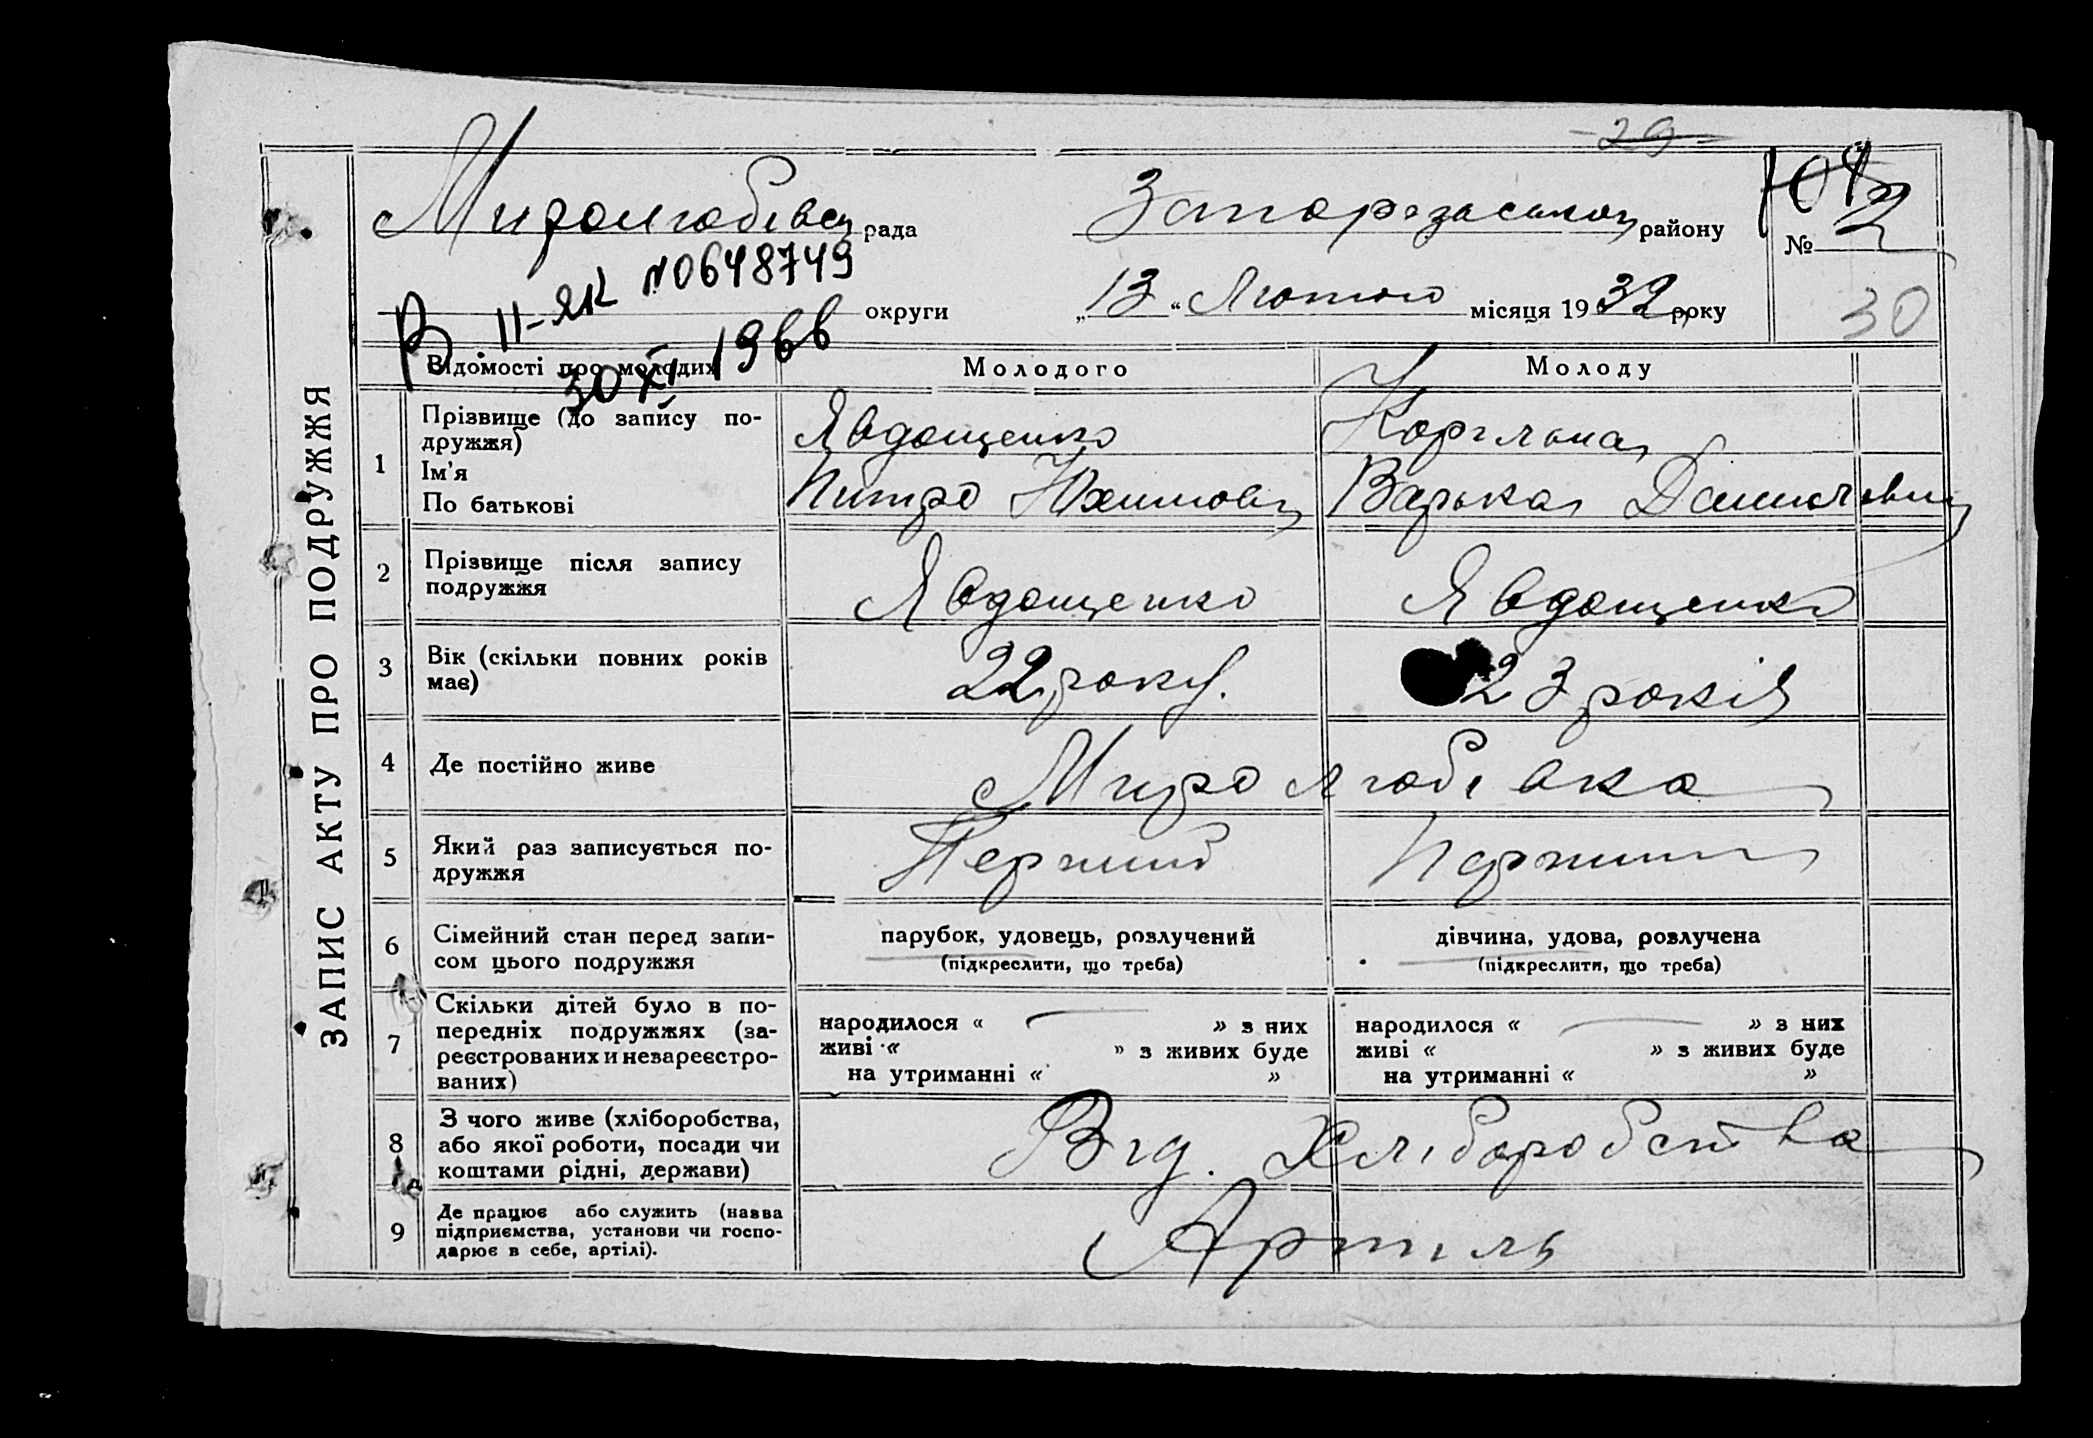 29
Миролюбівськ рада Запорізського району
104
№ 2
В. II-ЯК №0648749
округи „13“ Лютого місяця 1932 року
30
30 XI 1966
Відомості про молодих Молодого Молоду
ЗАПИС АКТУ ПРО ПОДРУЖЖЯ
1 Прізвище (до запису по-
дружжя) Явдощенко
Ім'я
По батькові Питро Юхимович Варька Данилівна
2 Прізвище після запису
подружжя Явдощенко Явдощенко
3 Вік (скільки повних років
має) 22 року. 23 років
4 Де постійно живе Миролюбівка
5 Який раз записується по-
дружжя Перший Перший
6 Сімейний стан перед запи-
сом цього подружжя
парубок, удовець, розлучений дівчина, удова, розлучена
(підкреслити, що треба) (підкреслити, що треба)
7 Скільки дітей було в по-
передніх подружжях (за-
реєстрованих и незареєстро-
ваних)
народилося « » з них народилося « » з них
живі « » з живих буде живі « » з живих буде
на утриманні « » на утриманні « »
8 З чого живе (хліборобства,
або якої роботи, посади чи
коштами рідні, держави) Від. Хліборобства
9 Де працює або служить (назва
підприємства, установи чи госпо-
дарює в себе, артілі). Артіль